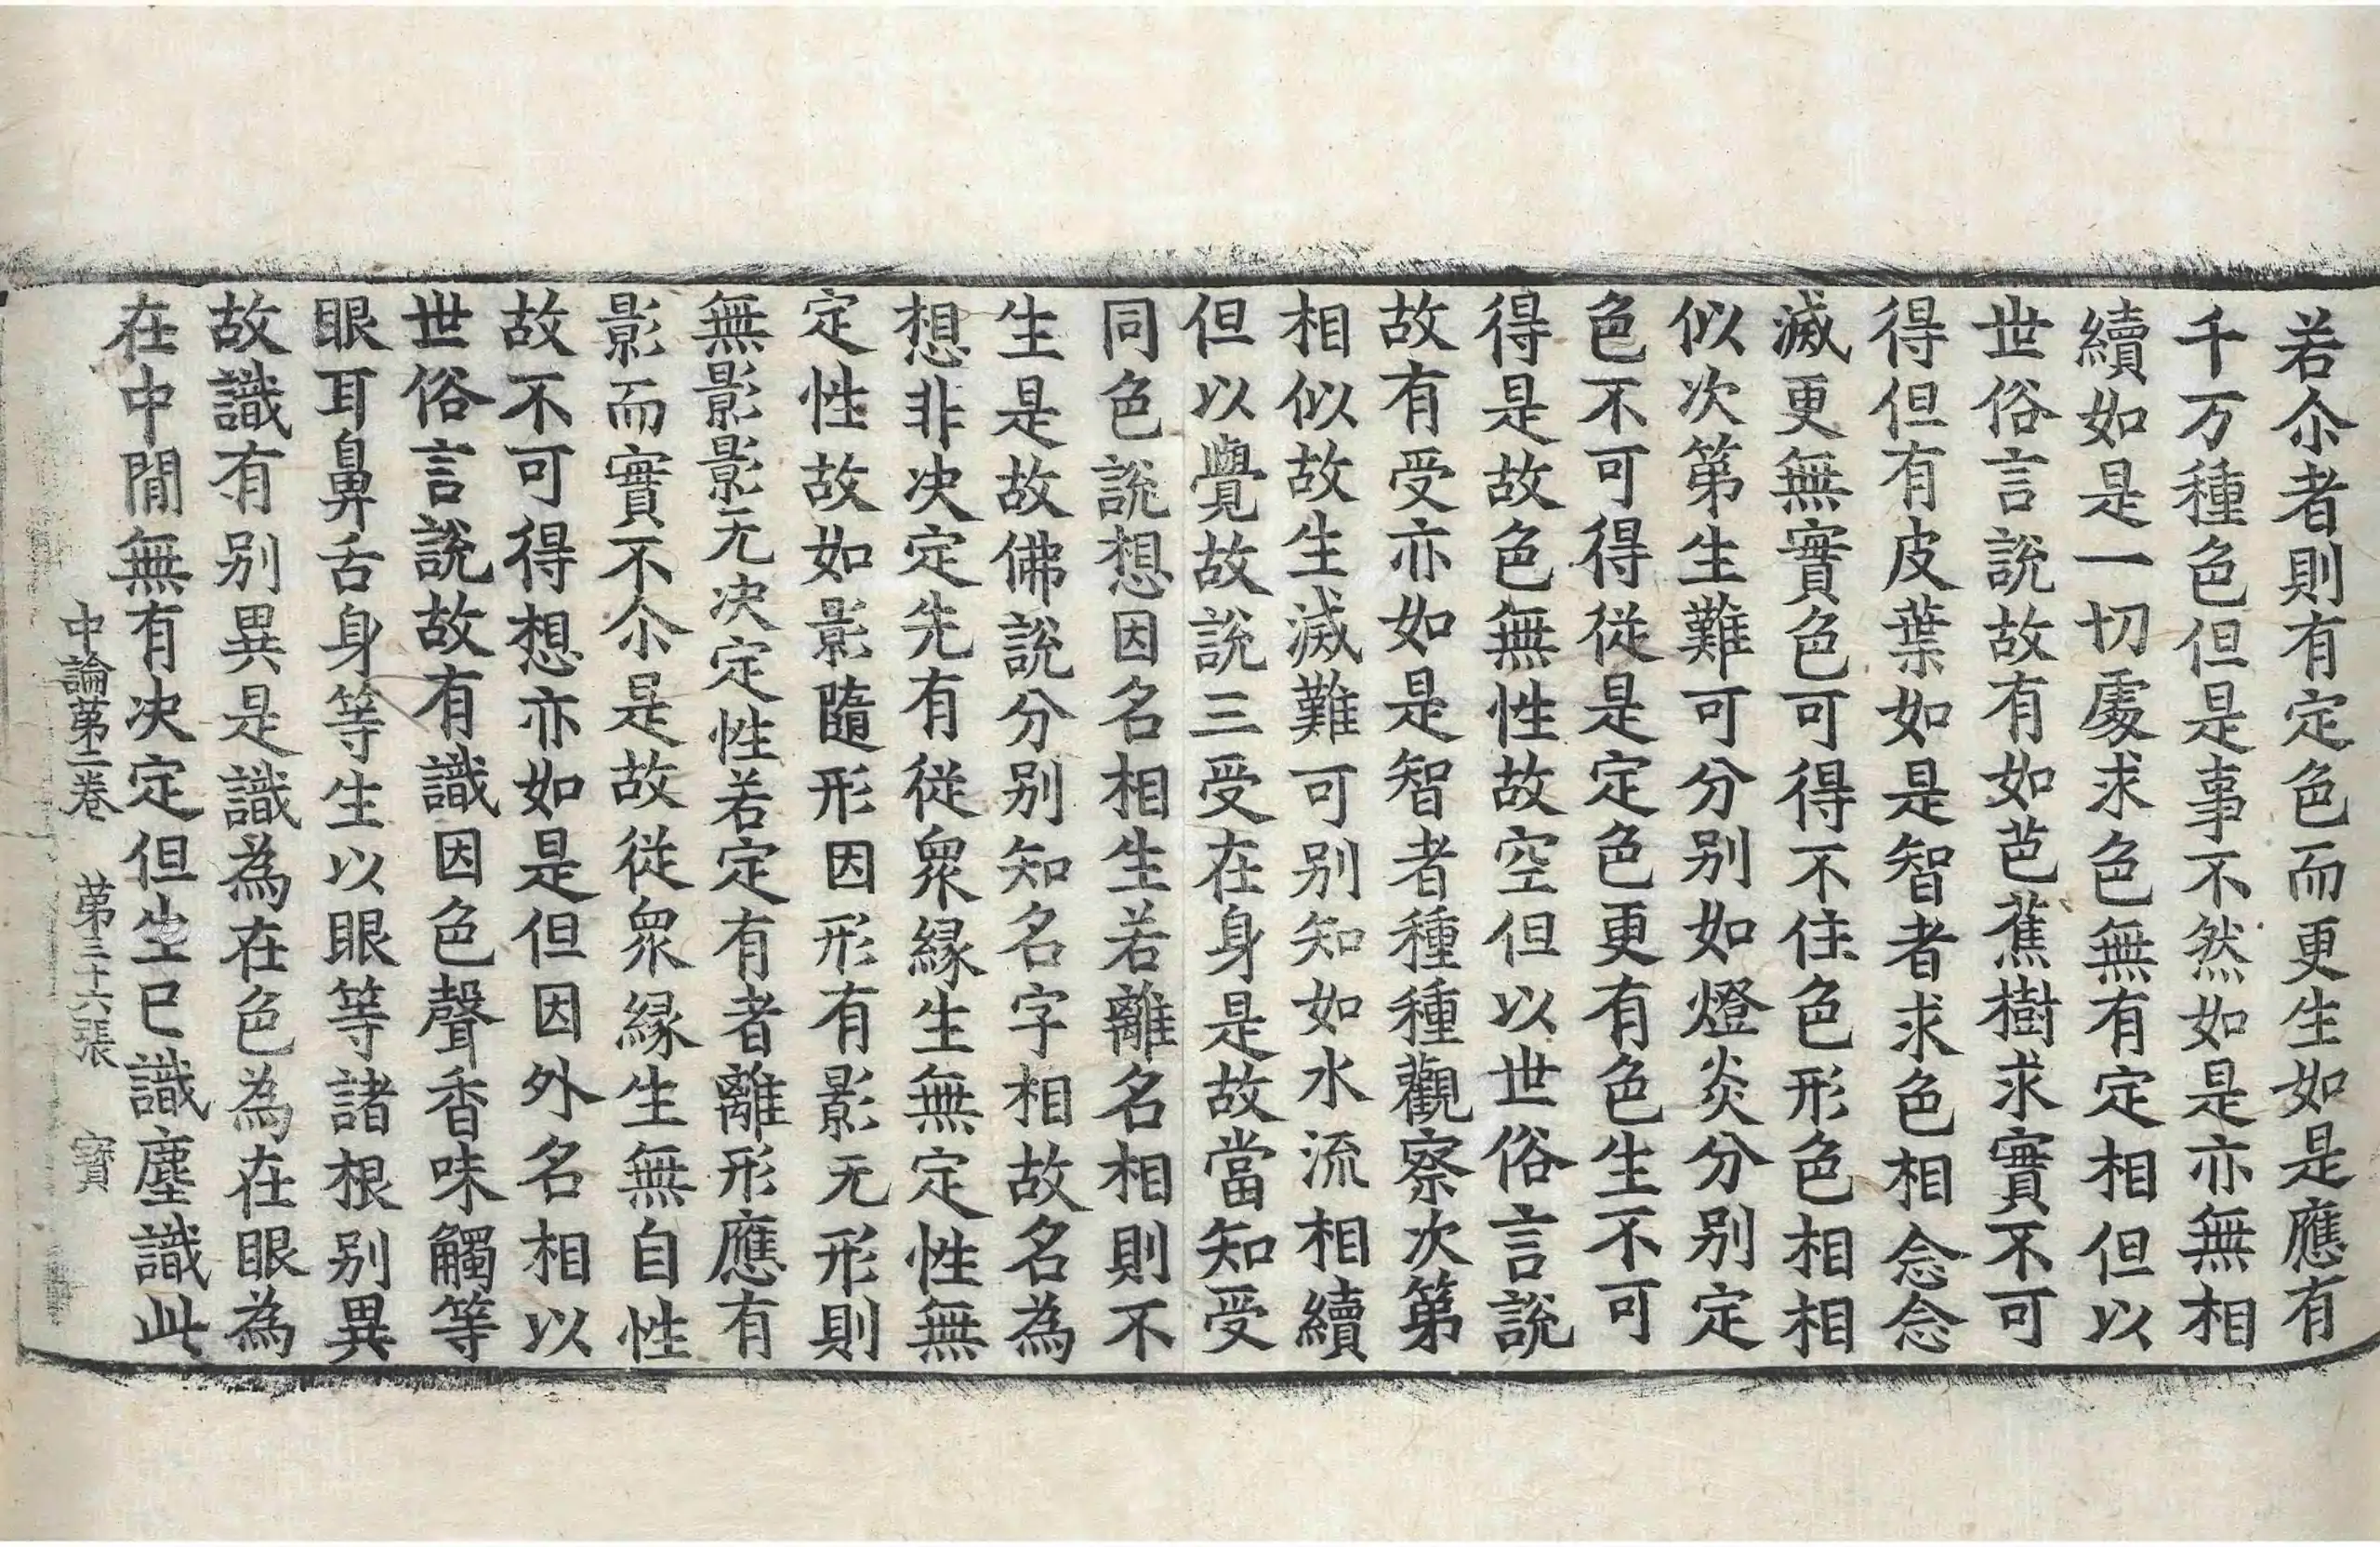 若尒者則有定色而更生如是應有
千万種色但是事不然如是亦無相
續如是一切處求色無有定相但以
世俗言說故有如芭蕉樹求實不可
得但有皮葉如是智者求色相念念
滅更無實色可得不住色形色相相
似次第生難可分別如燈炎分別定
色不可得從是定色更有色生不可
得是故色無性故空但以世俗言說
故有受亦如是智者種種觀察次第
相似故生滅難可別知如水流相續
但以覺故說三受在身是故當知受
同色說想因名相生若離名相則不
生是故佛說分別知名字相故名為
想非決定先有從眾緣生無定性無
定性故如影隨形因形有影无形則
無影影无決定性若定有者離形應有
影而實不尒是故從眾緣生無自性
故不可得想亦如是但因外名相以
世俗言說故有識因色聲香味觸等
眼耳鼻舌身等生以眼等諸根別異
故識有別異是識為在色為在眼為
在中間無有決定但生已識塵識此
中論第二卷 第三十六張 寶